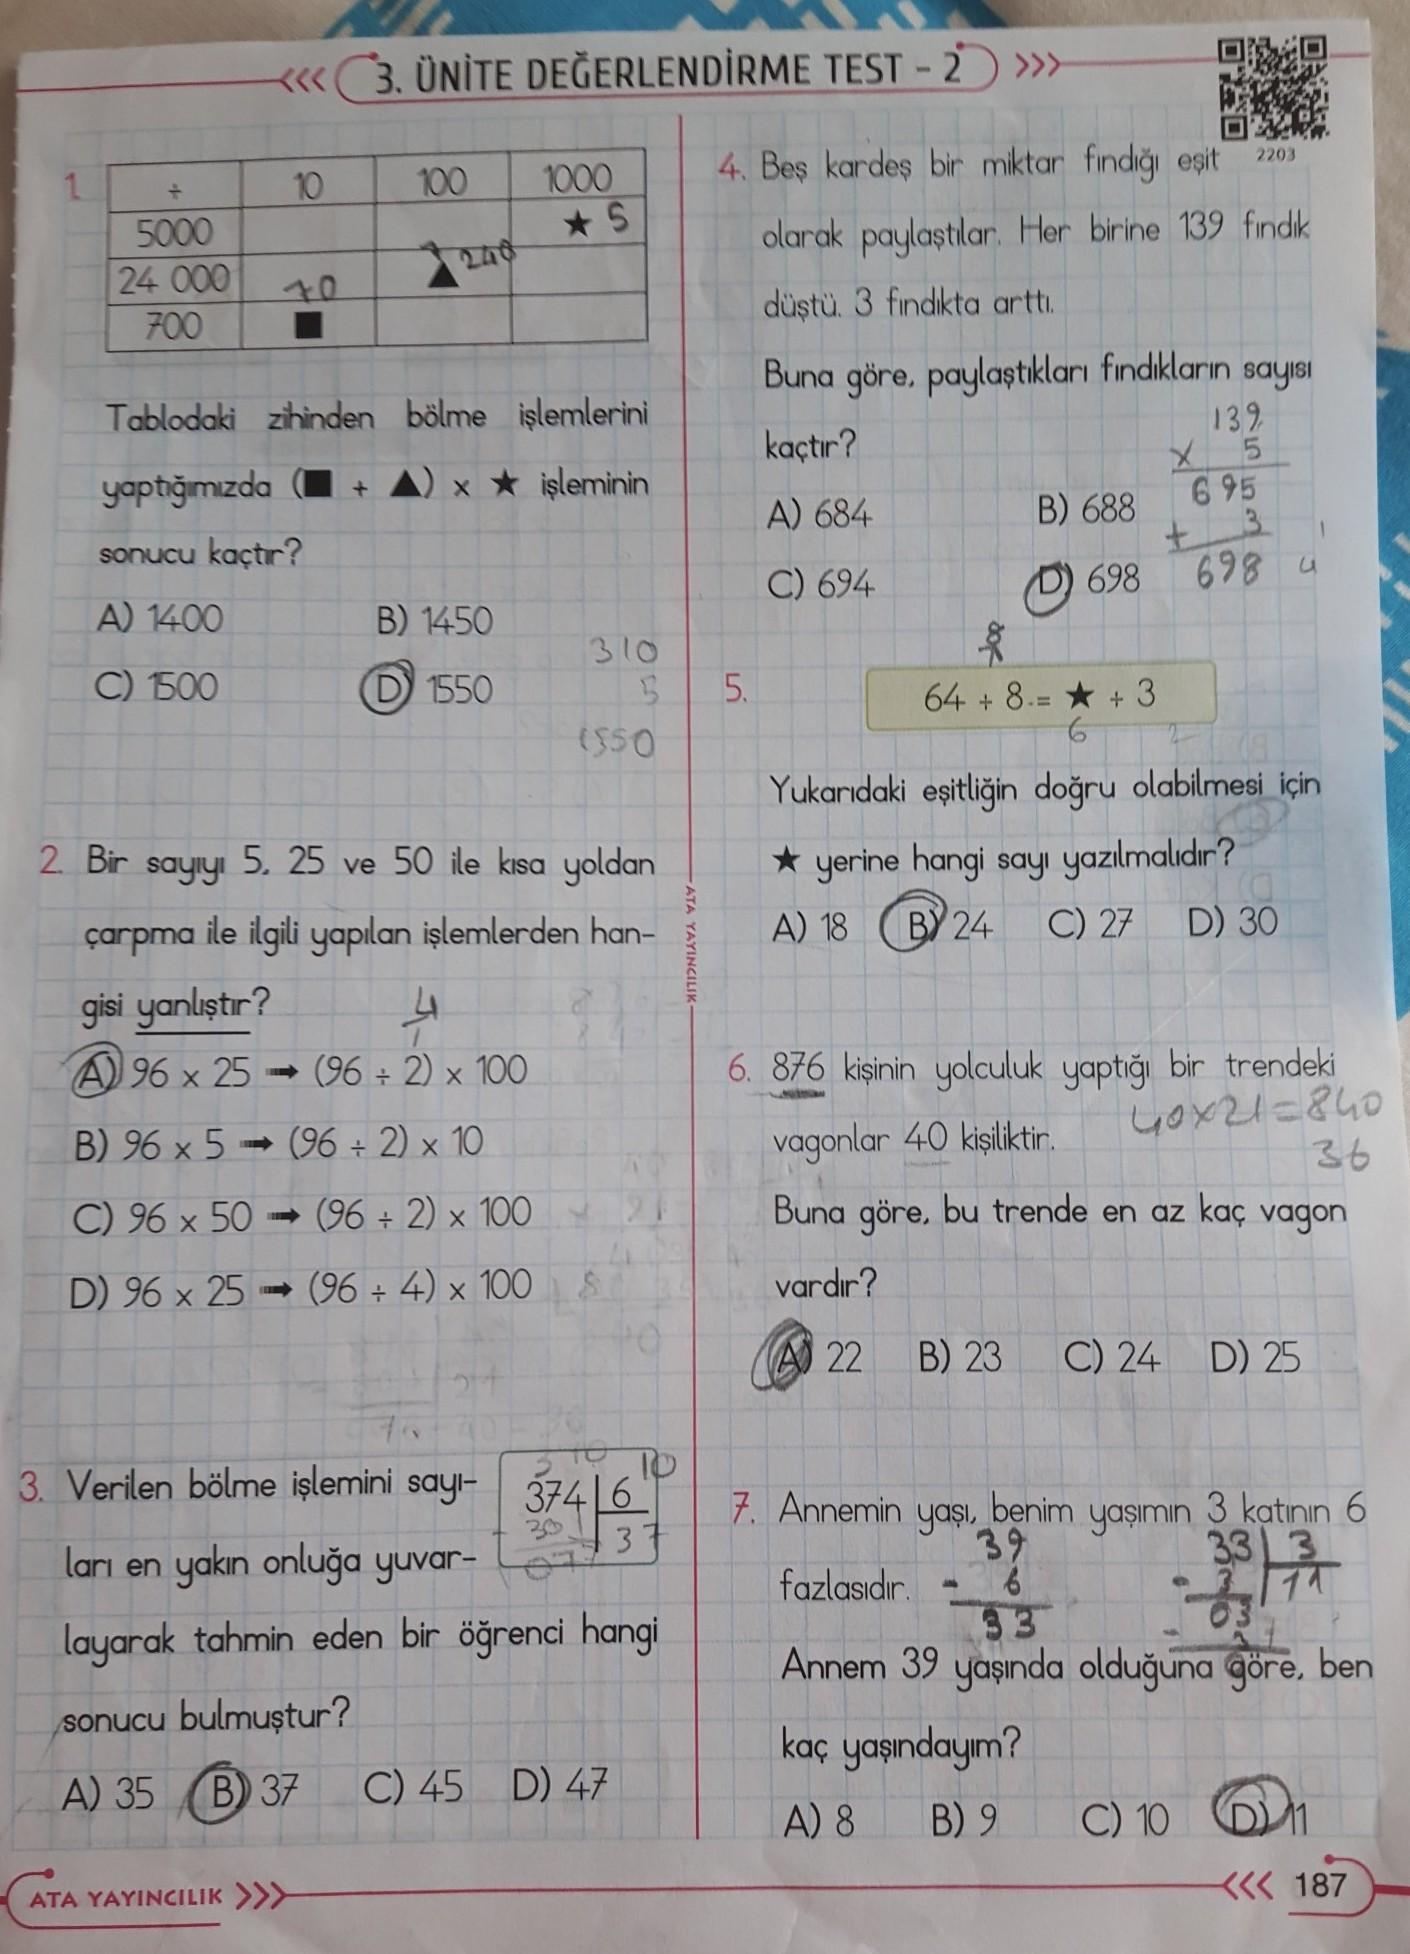 3. ÜNİTE DEĞERLENDİRME TEST - 2
2203
1.
÷ 10 100 1000
5000 ★ 5
24 000 ▲ 240
70
700 ■
Tablodaki zihinden bölme işlemlerini
yaptığımızda (■ + ▲) x ★ işleminin
sonucu kaçtır?
A) 1400 B) 1450
C) 1500 D) 1550
310
5
1550
2. Bir sayıyı 5, 25 ve 50 ile kısa yoldan
çarpma ile ilgili yapılan işlemlerden han-
gisi yanlıştır?
4
A) 96 x 25 → (96 ÷ 2) x 100
B) 96 x 5 → (96 ÷ 2) x 10
C) 96 x 50 → (96 ÷ 2) x 100
D) 96 x 25 → (96 ÷ 4) x 100
3. Verilen bölme işlemini sayı-
ları en yakın onluğa yuvar-
layarak tahmin eden bir öğrenci hangi
sonucu bulmuştur?
10
374 6
30 37
07
A) 35 B) 37 C) 45 D) 47
ATA YAYINCILIK
4. Beş kardeş bir miktar fındığı eşit
olarak paylaştılar. Her birine 139 fındık
düştü. 3 fındıkta arttı.
Buna göre, paylaştıkları fındıkların sayısı
kaçtır?
139
x 5
695
+ 3
698
A) 684 B) 688
C) 694 D) 698
5.
8
64 ÷ 8 = ★ ÷ 3
6 2
Yukarıdaki eşitliğin doğru olabilmesi için
★ yerine hangi sayı yazılmalıdır?
A) 18 B) 24 C) 27 D) 30
6. 876 kişinin yolculuk yaptığı bir trendeki
vagonlar 40 kişiliktir.
40x21=840
36
Buna göre, bu trende en az kaç vagon
vardır?
A) 22 B) 23 C) 24 D) 25
7. Annemin yaşı, benim yaşımın 3 katının 6
fazlasıdır.
39
- 6
33
33 3
- 3 11
03
Annem 39 yaşında olduğuna göre, ben
kaç yaşındayım?
A) 8 B) 9 C) 10 D) 11
ATA YAYINCILIK
187